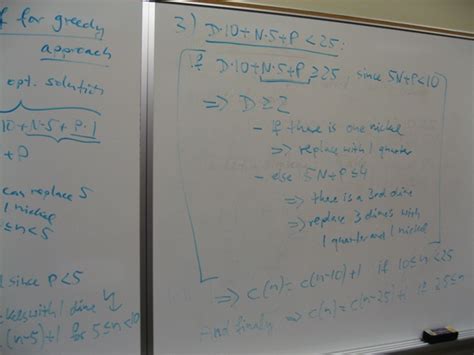 f for greedy
approach
opt. solution
10+N·5+P·1
+P
can replace 5
1 nickel
≤n<5
since P<5
with 1 dime
(n-5)+1 for 5≤n<10
3) D·10+N·5+P<25:
if D·10+N·5+P≥25, since 5N+P<10
⇒ D≥2
- if there is one nickel
⇒ replace with 1 quarter
- else 5N+P≤4
⇒ there is a 3rd dime
⇒ replace 3 dimes with
1 quarter and 1 nickel
⇒ C(n)=C(n-10)+1 if 10≤n<25
And finally ⇒ C(n)=C(n-25)+1 if 25≤n